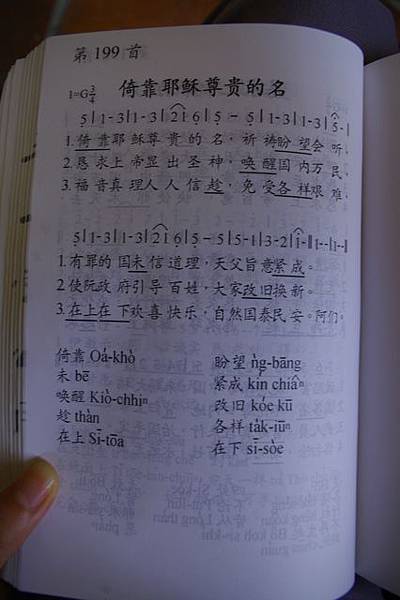 第 199 首
1=G3/4 倚靠耶稣尊贵的名
5|1-3|1-3|2i6|5-5|1-3|1-3|5-|
1.倚靠耶稣尊贵的名，祈祷盼望会听，
2.恳求上帝显出圣神，唤醒国内万民，
3.福音真理人人信趁，免受各样艰难，
5|1-3|1-3|2i6|5-5|5-4|3-2|i-‖1--|1--‖
1.有罪的国未信道理，天父旨意紧成。
2.使阮政府引导百姓，大家改旧换新。
3.在上在下欢喜快乐，自然国泰民安。阿们。
倚靠 Oá-khò 盼望 ǹg-bāng
未 bē 紧成 kín chiâⁿ
唤醒 Kiò-chhíⁿ 改旧 kóe kū
趁 thàn 各样 ta̍k-iūⁿ
在上 Sī-tōa 在下 sī-sòe